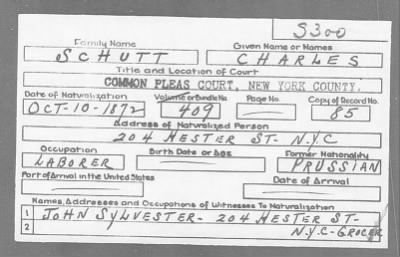 S300
Family Name Given Name or Names
SCHUTT CHARLES
Title and Location of Court
COMMON PLEAS COURT, NEW YORK COUNTY.
Date of Naturalization Volume or Bundle No. Page No. Copy of Record No.
OCT-10-1872 409 85
Address of Naturalized Person
204 HESTER ST- N.Y.C
Occupation Birth Date or Age Former Nationality
LABORER PRUSSIAN
Port of Arrival in the United States Date of Arrival
Names, Addresses and Occupations of Witnesses To Naturalization
1 JOHN SYLVESTER- 204 HESTER ST-
2 N.Y.C-GROCER